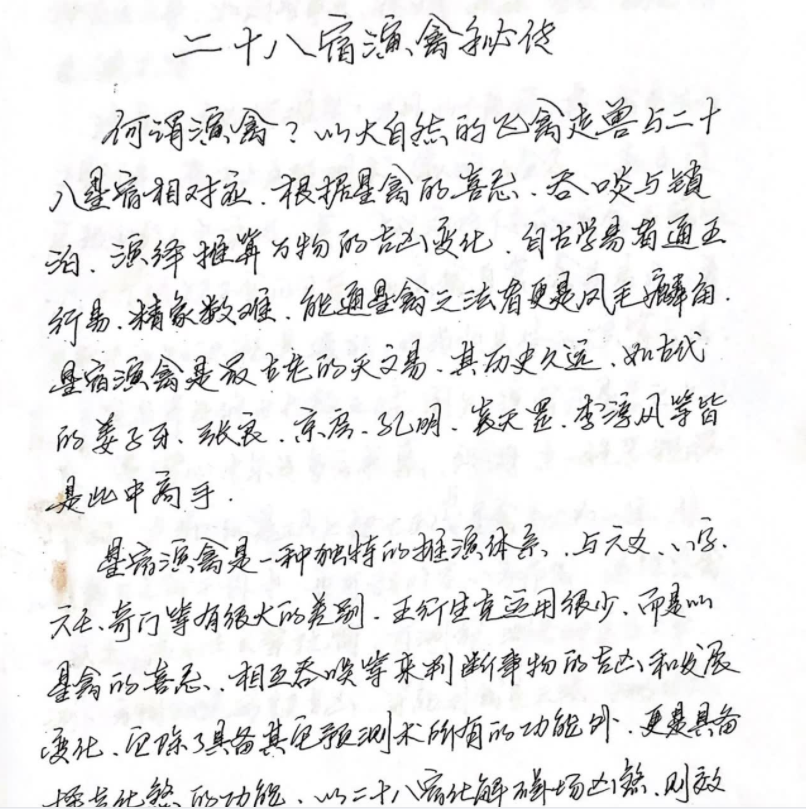 二十八宿演禽秘传
何谓演禽？以大自然的飞禽走兽与二十
八星宿相对应．根据星禽的喜忌．吞啖与锁
泊．演绎推算万物的吉凶变化．自古学易者通五
行易．精象数难．能通星禽之法者更是凤毛麟角．
星宿演禽是最古老的天文易．其历史久远．如古代
的姜子牙．张良．京房．孔明．袁天罡．李淳风等皆
是此中高手．
星宿演禽是一种独特的推演体系．与六爻．八字．
六壬、奇门等有很大的差别．五行生克运用很少．而是以
星禽的喜忌．相互吞啖等来判断事物的吉凶和发展
变化．它除了具备其它预测术所有的功能外．更是具备
择吉化煞的功能．以二十八宿化解磁场凶煞．则效